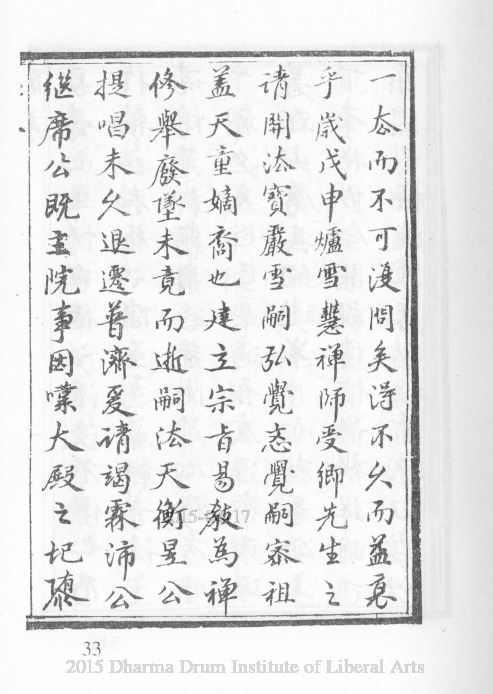 一太而不可復問矣得不久而益衰
乎歲戊申爐雪慧禪师受卿先生之
请開法寶嚴雪嗣弘覺忞覺嗣宻祖
盖天童嫡裔也建立宗旨易教為禪
修舉廢墜未竟而逝嗣法天衡昱公
提唱未久退遷普濟爰请竭霖沛公
继席公既主院事因嘆大殿之圮
33
2015 Dharma Drum Institute of Liberal Arts